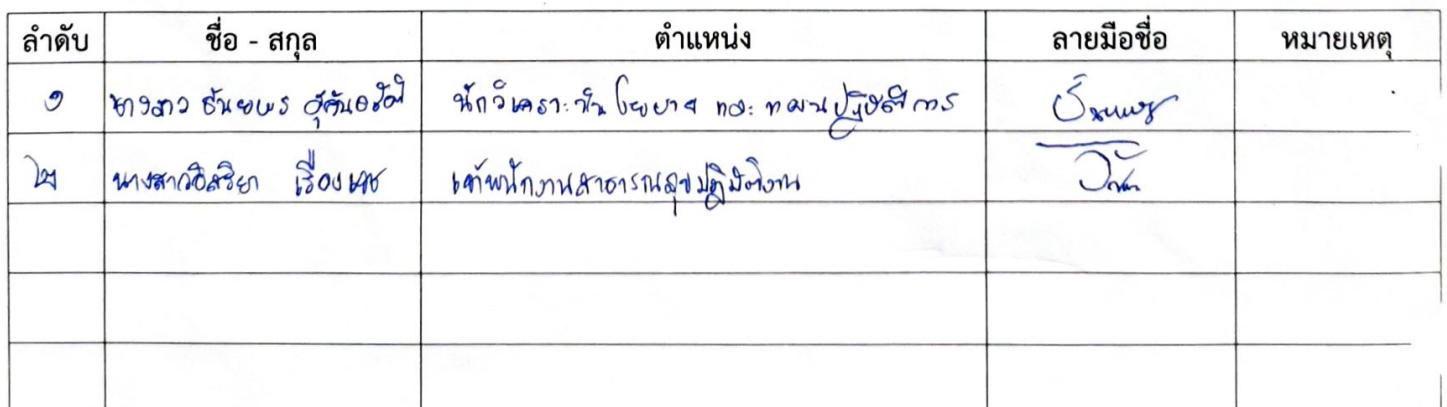 ลำดับ ชื่อ - สกุล ตำแหน่ง ลายมือชื่อ หมายเหตุ
๑ นางสาว ธันยพร นักวิเคราะห์นโยบาย และ แผนปฏิบัติการ
๒ นางสาวอิสริยา เรืองเดช เจ้าพนักงานสาธารณสุขปฏิบัติงาน